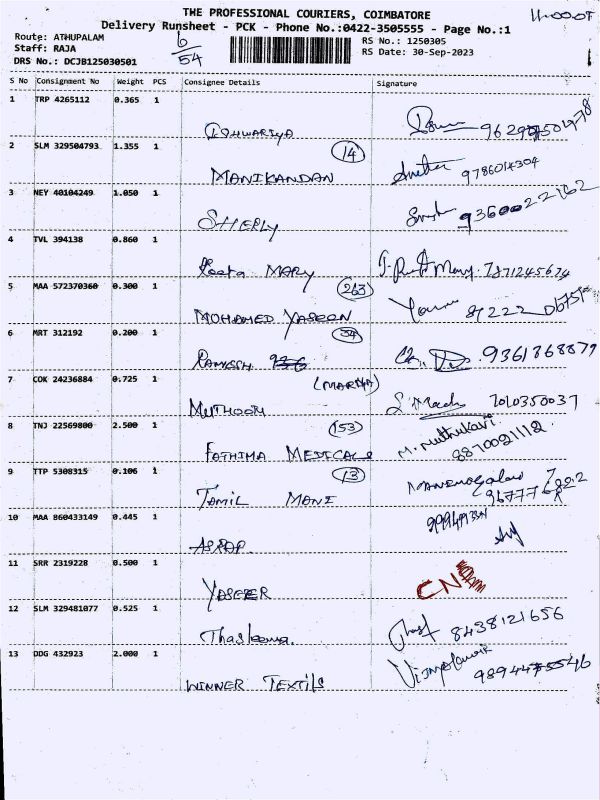 THE PROFESSIONAL COURIERS, COIMBATORE
Delivery Runsheet - PCK - Phone No.:0422-3505555 - Page No.:1
Route: ATHUPALAM
Staff: RAJA
DRS No.: DCJB125030501
6/54
RS No.: 1250305
RS Date: 30-Sep-2023
S No Consignment No Weight PCS Consignee Details Signature
1 TRP 4265112 0.365 1
2 SLM 329504793 1.355 1 (14)
MANIKANDAN 9786014304
3 NEY 40104249 1.050 1
SHERLY 9360022162
4 TVL 394138 0.860 1
MARY Mary. 7871245674
5 MAA 572370360 0.300 1 (263)
MOHAMED YASEEN
6 MRT 312192 0.200 1 (34)
RAMESH 9361868879
7 COK 24236884 0.725 1 (MARIYA)
MUTHOOT 7010350037
8 TNJ 22569800 2.500 1 (153)
FATHIMA MEDICALS M. Muthukavi. 8870021112.
9 TTP 5308315 0.106 1 (13)
TAMIL MANI
10 MAA 860433149 0.445 1
ASRAP
11 SRR 2319228 0.500 1
YASEER CN
12 SLM 329481077 0.525 1
Thasleema. 8438121656
13 DDG 432923 2.000 1
WINNER TEXTILS